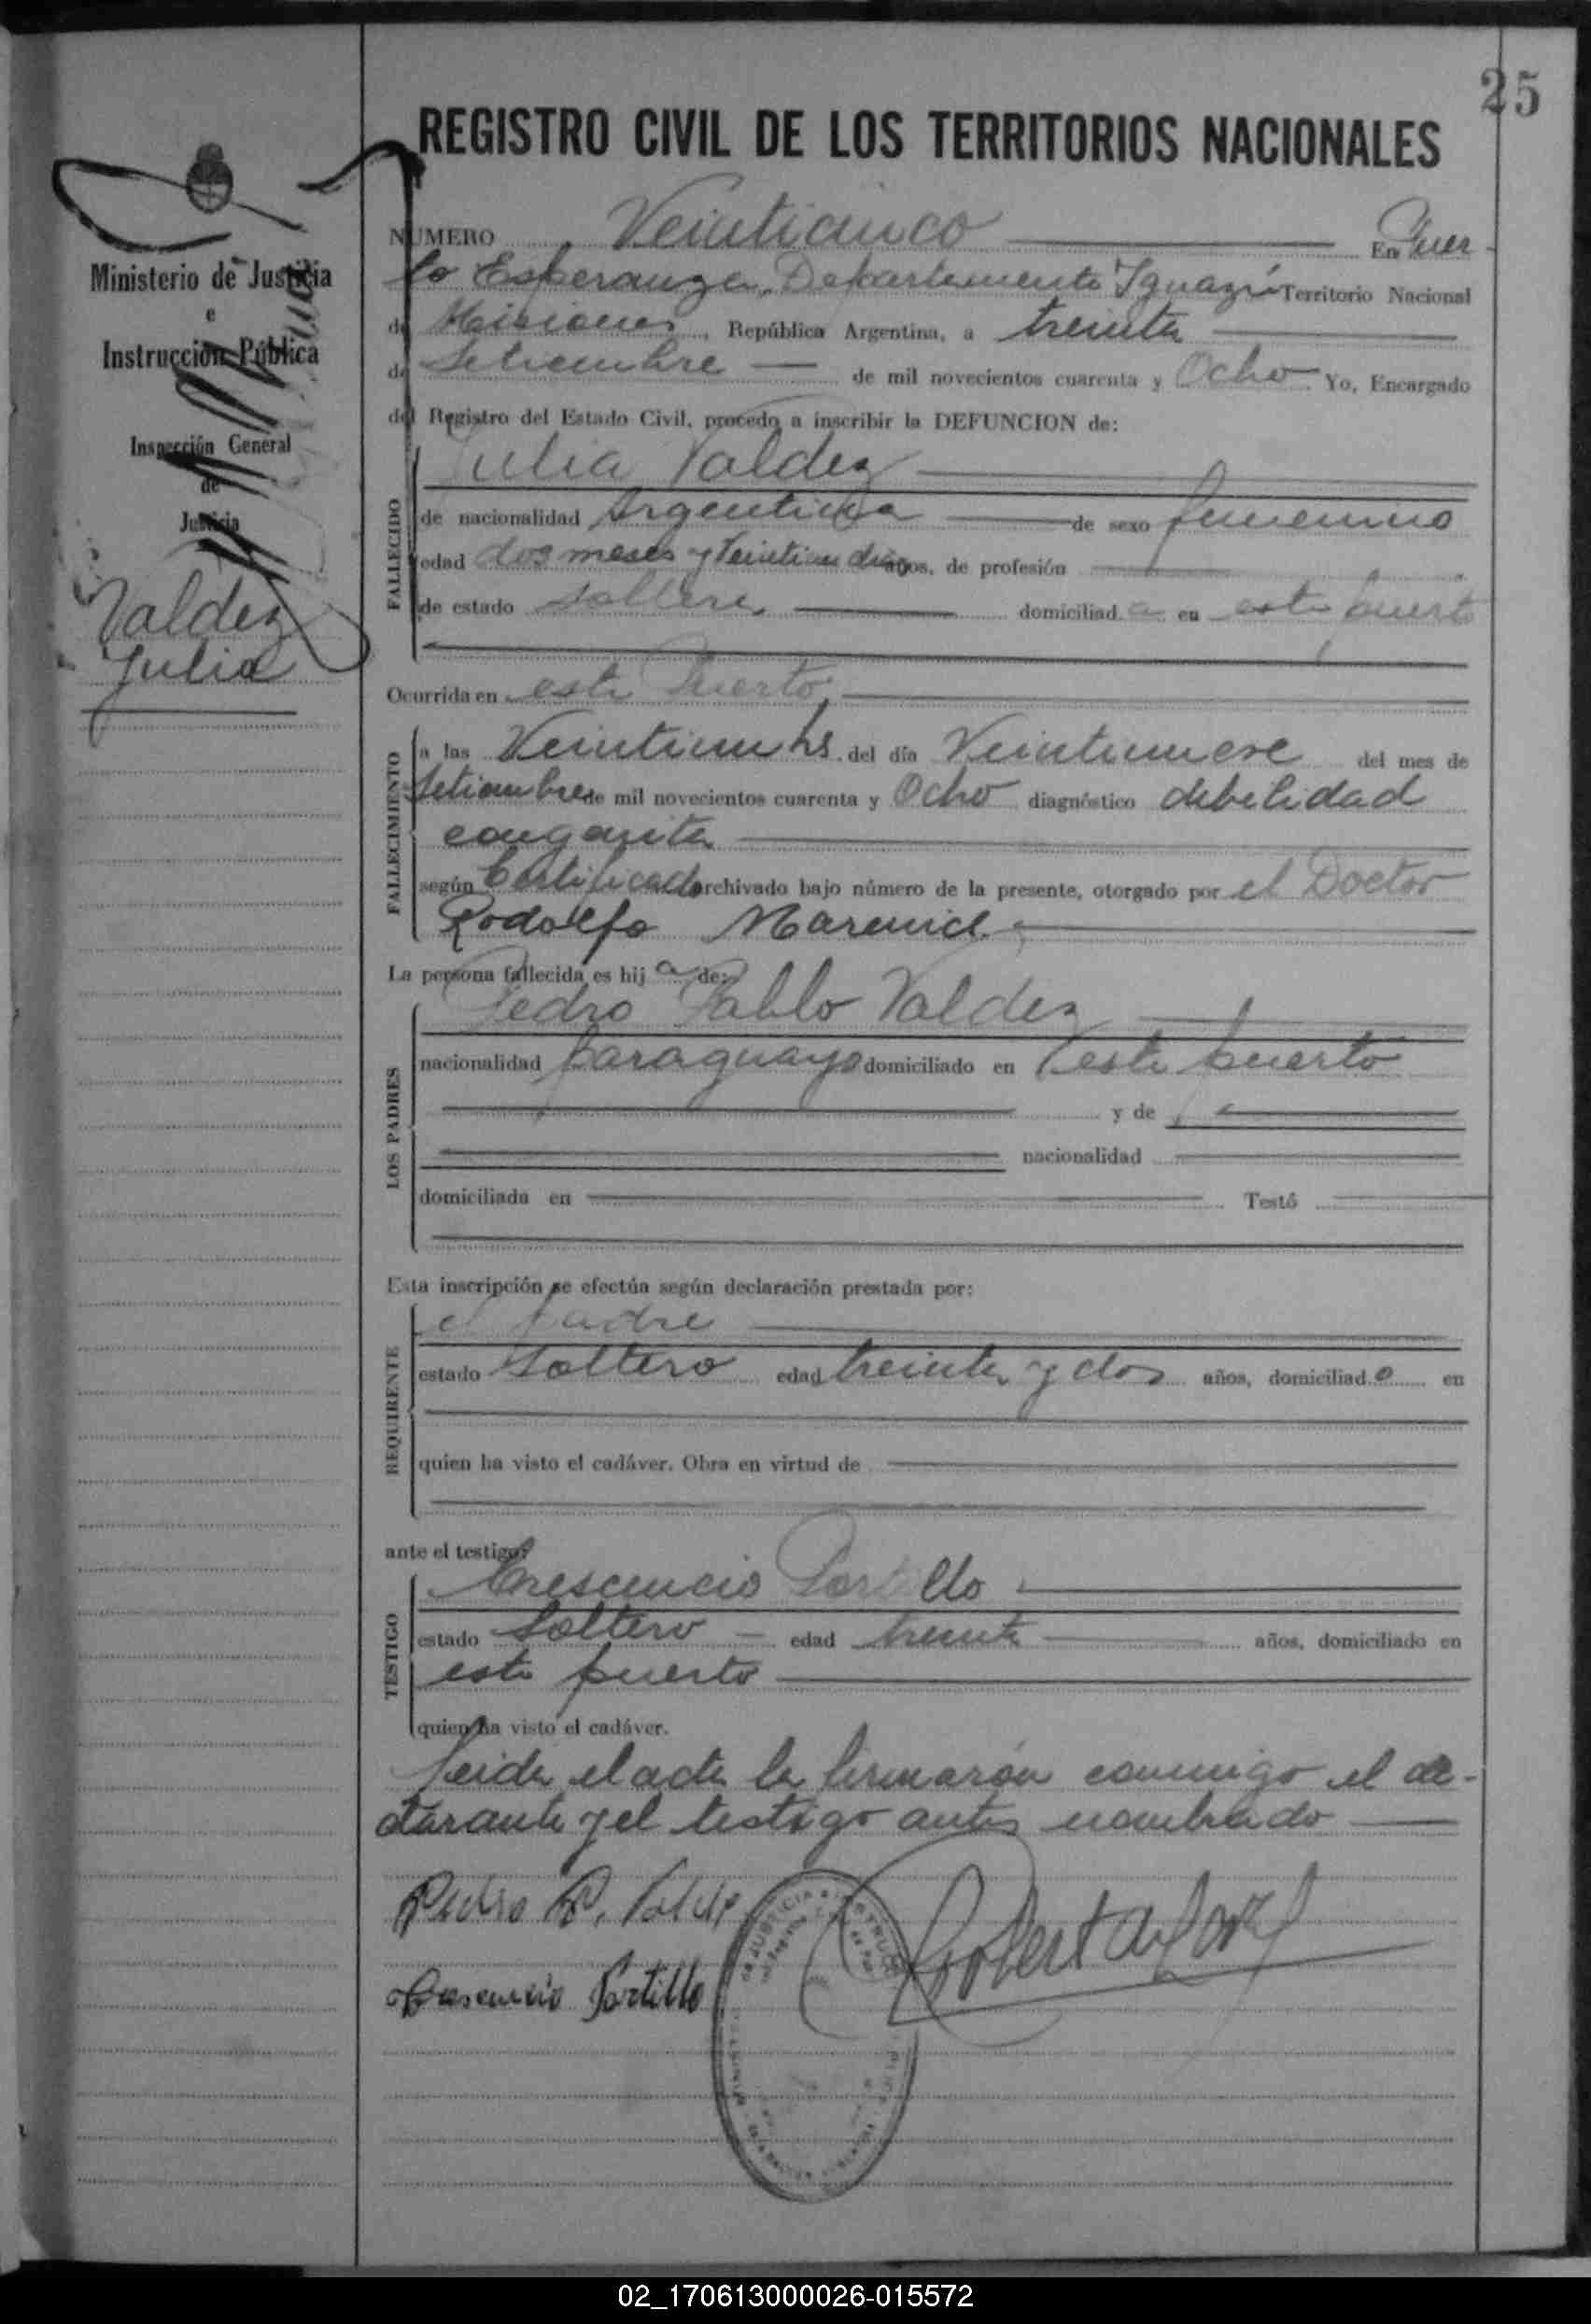 25
REGISTRO CIVIL DE LOS TERRITORIOS NACIONALES
NUMERO Veinticinco En Puer
to Esperanza, Departamento Iguazú Territorio Nacional
de Misiones, República Argentina, a treinta
de Setiembre de mil novecientos cuarenta y Ocho Yo, Encargado
del Registro del Estado Civil, procedo a inscribir la DEFUNCION de:
Ministerio de Justicia
e
Instrucción Pública
Inspección General
de
Justicia
Valdez
Julia
FALLECIDO
Julia Valdez
de nacionalidad Argentina de sexo femenino
edad dos meses y Veintiun dias años, de profesión
de estado soltera domiciliad a en este puerto
Ocurrida en este Puerto,
FALLECIMIENTO
a las Veintiun hs. del día Veintinueve del mes de
Setiembre de mil novecientos cuarenta y Ocho diagnóstico debilidad
congenita
según Certificado archivado bajo número de la presente, otorgado por el Doctor
Rodolfo
La persona fallecida es hij a de:
LOS PADRES
Pedro Pablo Valdez
nacionalidad paraguayo domiciliado en este puerto
y de
nacionalidad
domiciliada en Testó
Esta inscripción se efectúa según declaración prestada por:
REQUIRENTE
el padre
estado Soltero edad treinta y dos años, domiciliad o en
quien ha visto el cadáver. Obra en virtud de
ante el testigo:
TESTIGO
Crescencio Portillo
estado Soltero edad treinta años, domiciliado en
este puerto
quien ha visto el cadáver.
Leida el acta la firmaron conmigo el de-
clarante y el testigo antes nombrado
Pedro P. Valdez
Crescencio Portillo
02_170613000026-015572